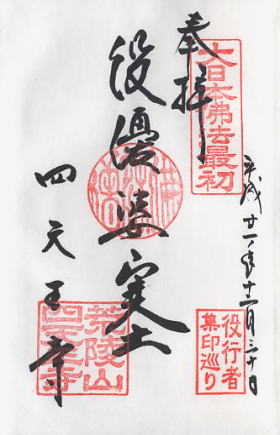 大日本佛法最初
奉拝
役優婆塞
四天王寺
平成廿一年 三十日
役行者
集印巡り
荒陵山
四天王寺